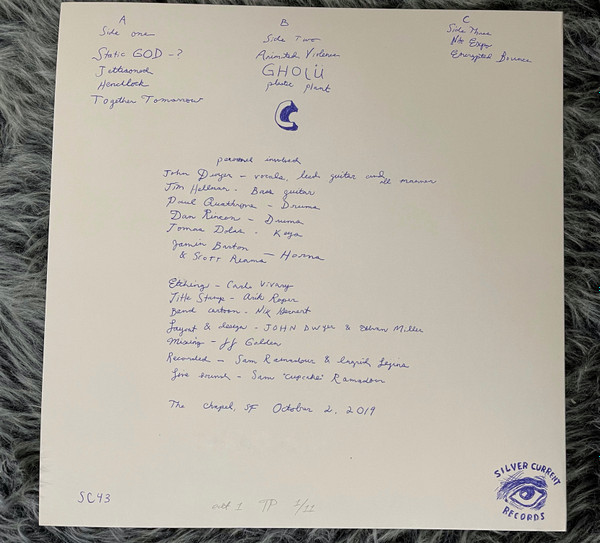 A
Side one
Static GOD - ?
Jettisoned
Henchlock
Together Tomorrow
B
Side Two
Animated Violence
GHOLÜ
plastic plant
C
Side Three
Nite Expo
Encrypted Bounce
C
personel involved
John Dwyer - vocals, lead guitar and all manner
Tim Hellman - Bass guitar
Paul Quattrone - Drums
Dan Rincon - Drums
Tomas Dolas - Keys
Jamin Barton
& Scott - Horns
Etching - Carlo Vivary
Title Stamp - Arik Roper
Band cartoon - Nik
Layout & design - JOHN DWYER & Miller
Mixing - JJ Golden
Recorded - Sam Ramadour & Ingrid
Live sound - Sam "Cupcake" Ramadour
The Chapel, SF October 2, 2019
SC43
TP 1/11
SILVER CURRENT
RECORDS